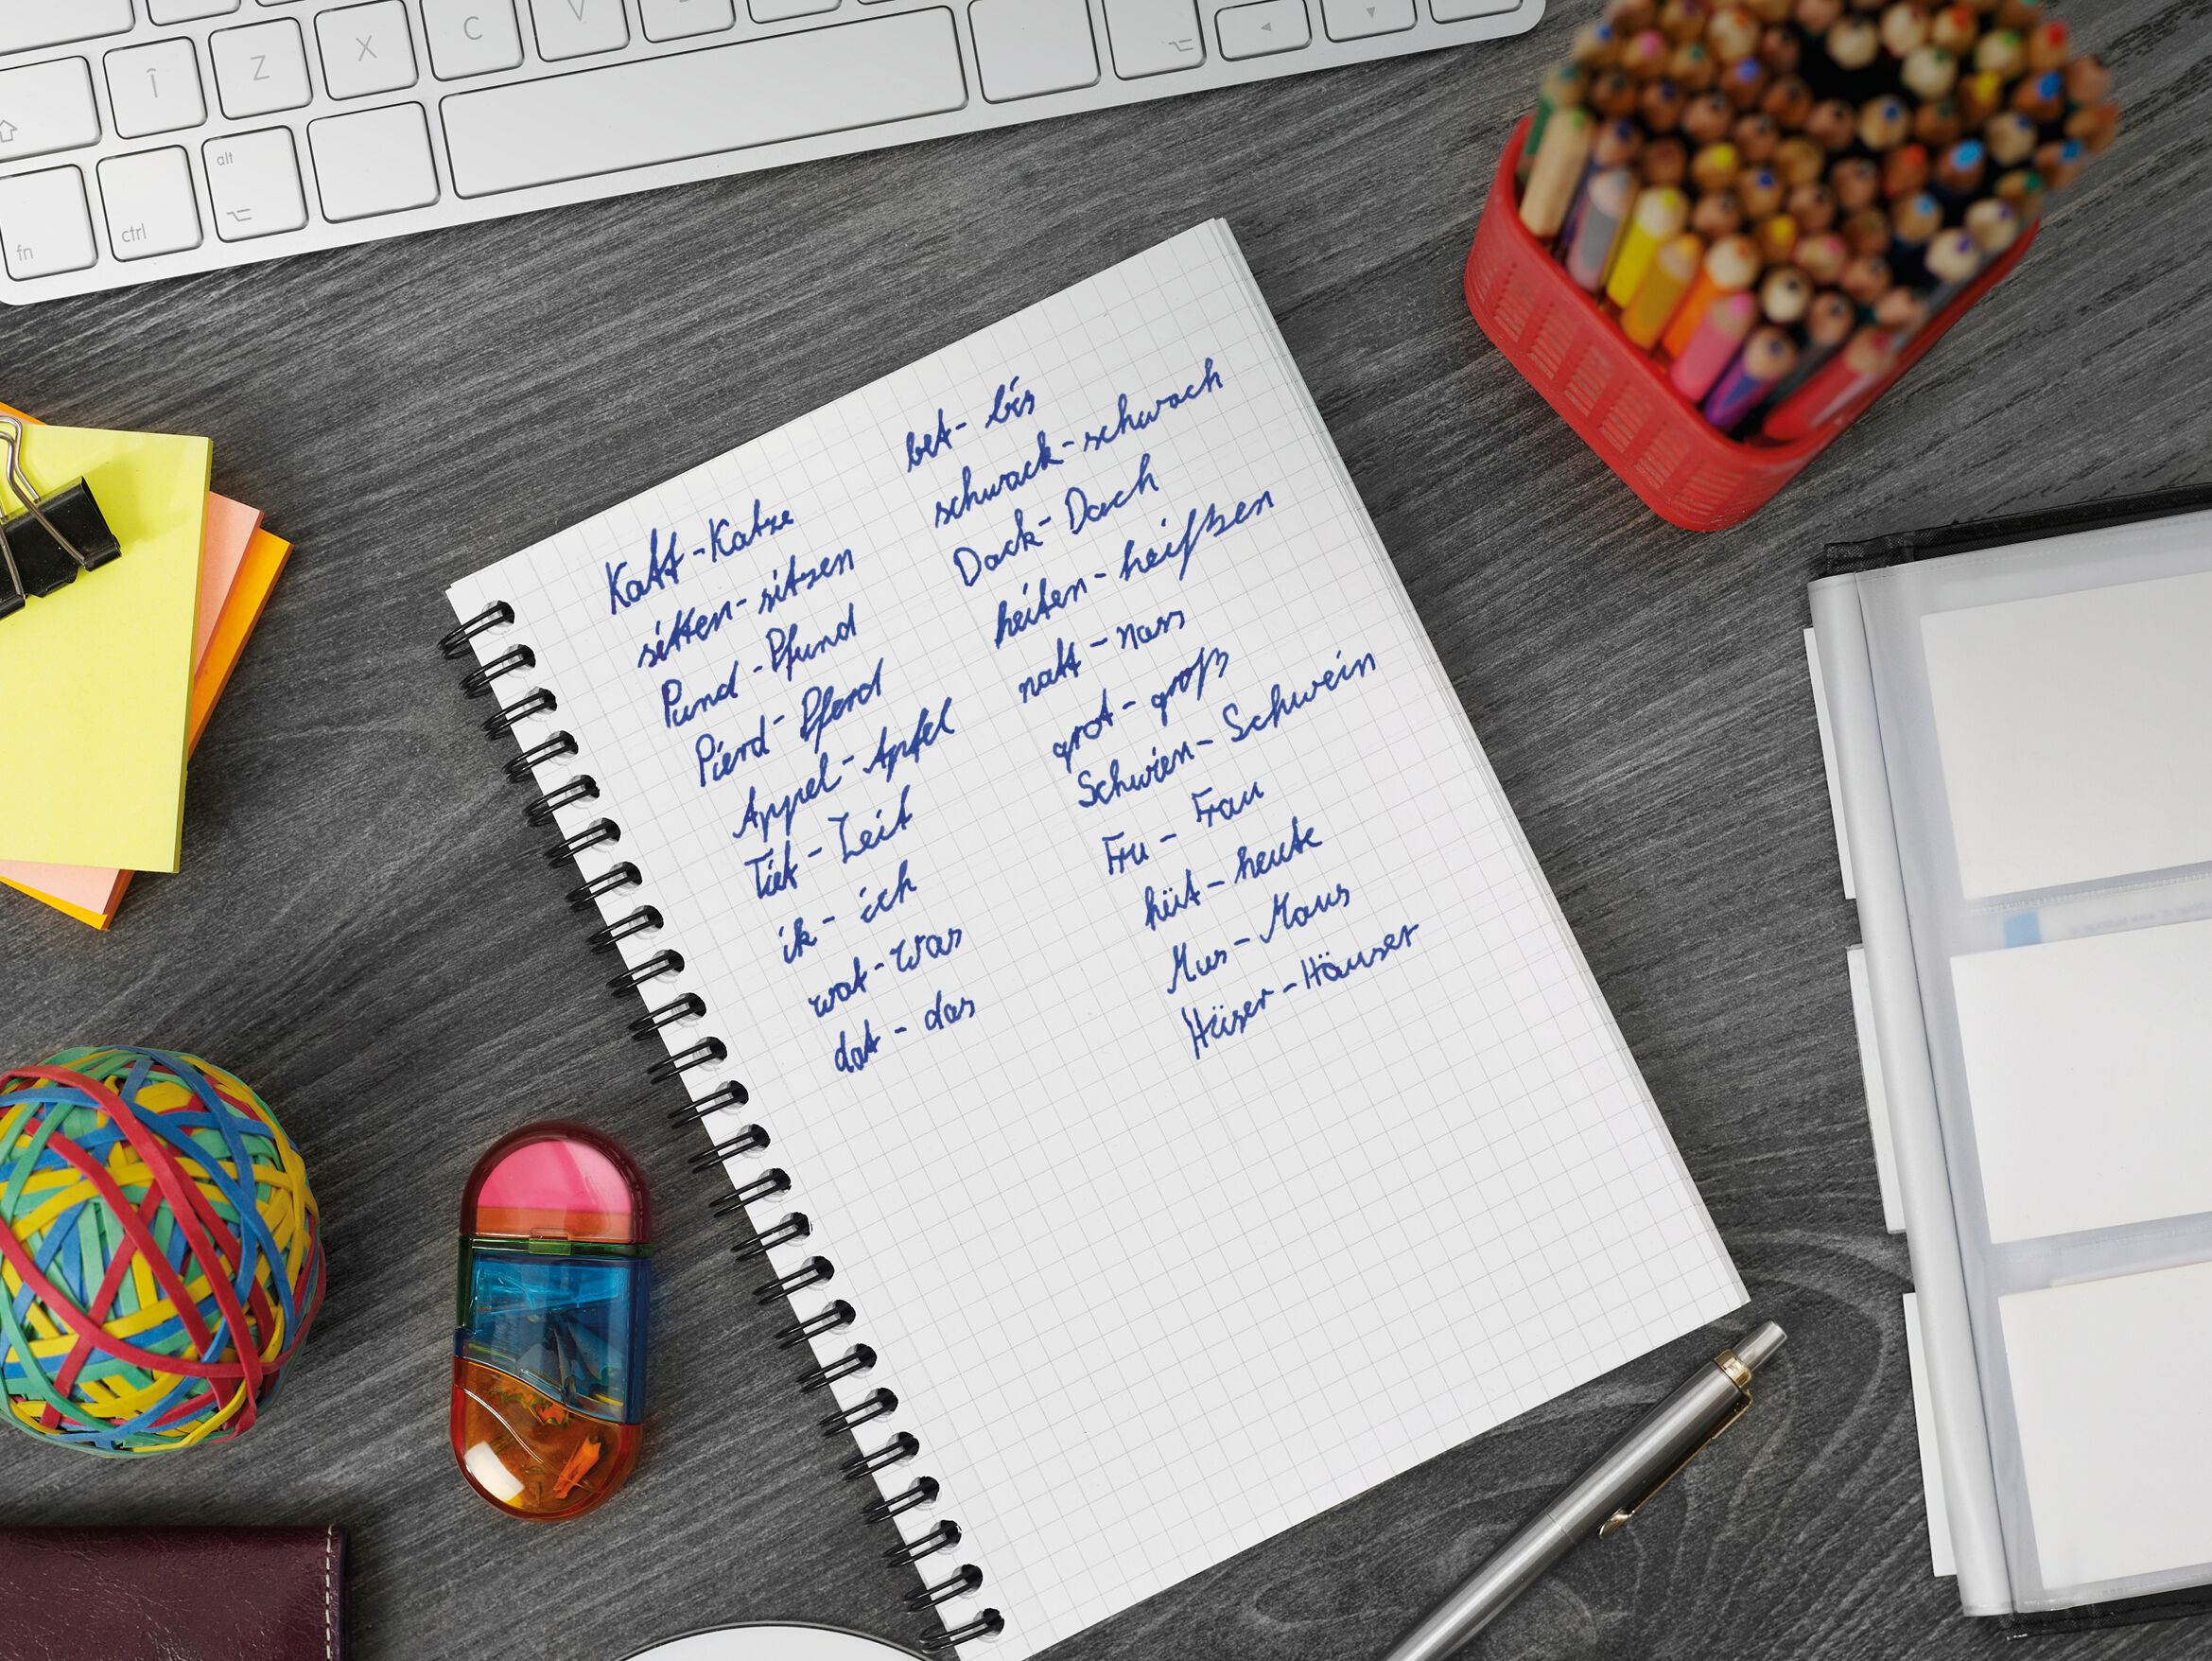 Î Z X C V
alt
fn ctrl
Katt - Katze
sitten - sitzen
Pund - Pfund
Pierd - Pferd
Appel - Apfel
Tiet - Zeit
ik - ich
wat - was
dat - das
bet - bis
schwack - schwach
Dack - Dach
heiten - heißen
natt - nass
grot - groß
Schwien - Schwein
Fru - Frau
hüt - heute
Mus - Maus
Hüser - Häuser